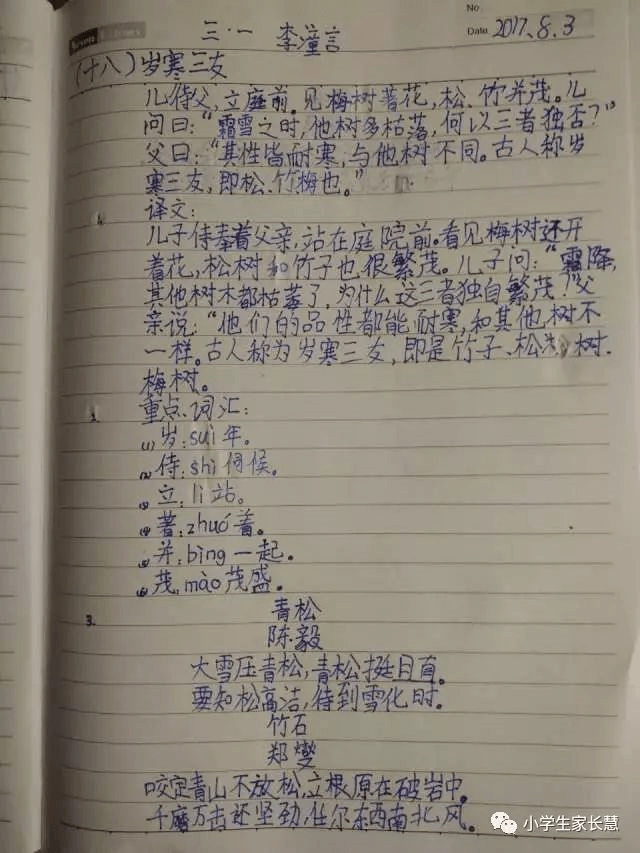 No
三·一 李潼言 Date 2017.8.3
(十八)岁寒三友
儿侍父,立庭前。见梅树著花,松、竹并茂。儿
问曰:“霜雪之时,他树多枯落,何以三者独否?”
父曰:“其性皆耐寒,与他树不同。古人称岁
寒三友,即松、竹梅也。”
译文:
儿子侍奉着父亲,站在庭院前。看见梅树还开
着花,松树和竹子也很繁茂。儿子问:“霜降,
其他树木都枯落了,为什么这三者独自繁茂?父
亲说:“他们的品性都能耐寒,和其他树不
一样。古人称为岁寒三友,即是竹子、松 树、
梅树。
重点词汇:
(1)岁:suì年。
(2)侍:shì伺候。
(3)立:lì站。
(4)著:zhuó着。
(5)并:bìng一起。
(6)茂:mào茂盛。
3.
青松
陈毅
大雪压青松,青松挺且直。
要知松高洁,待到雪化时。
竹石
郑燮
咬定青山不放松,立根原在破岩中。
千磨万击还坚劲,任尔东西南北风。
小学生家长慧